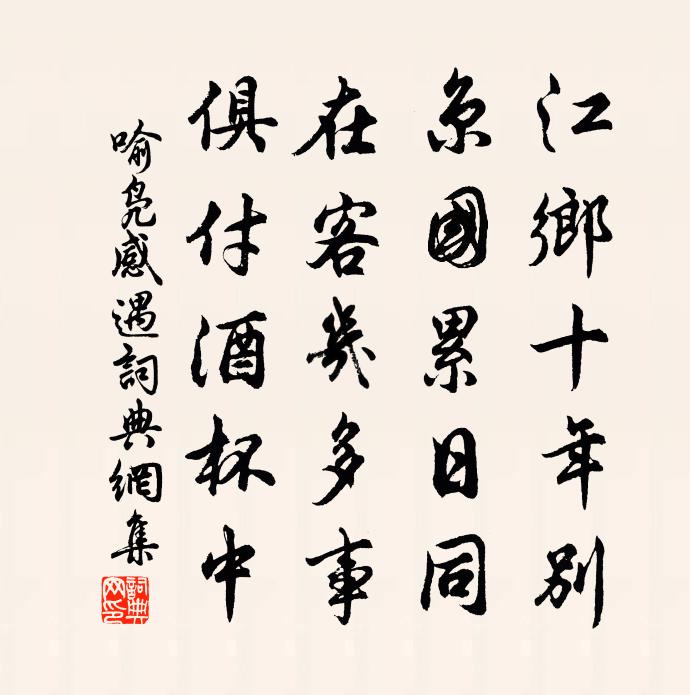 江鄉十年別
京國累日同
在客幾多事
俱付酒杯中
喻鳧感遇詞典網集
詞典网印